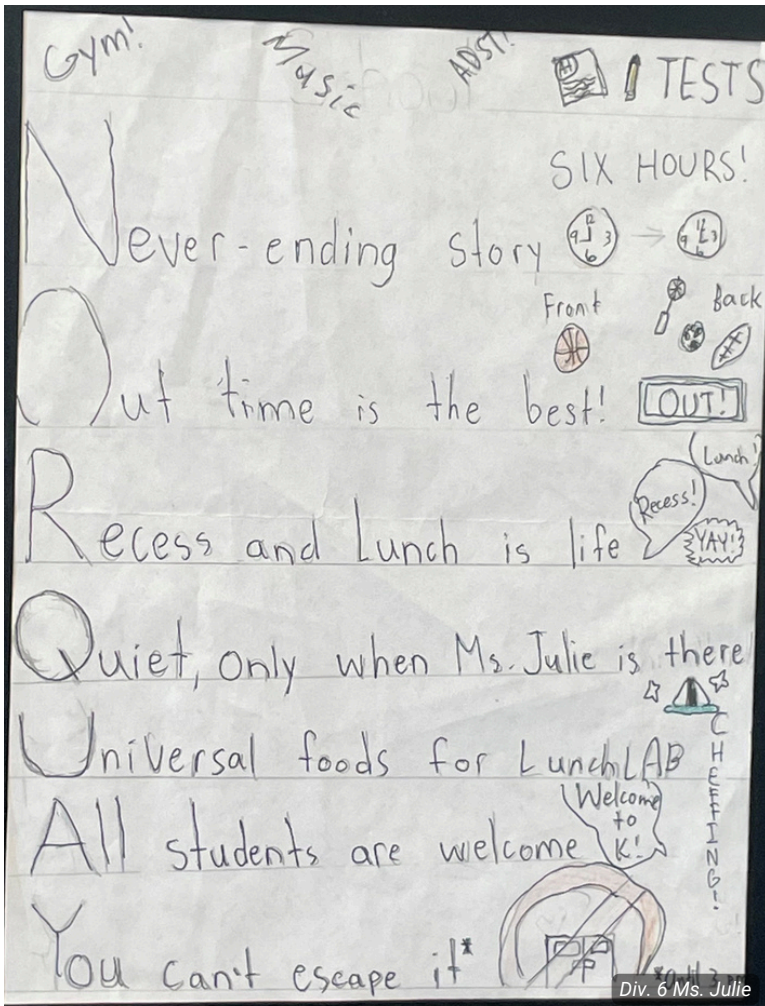 Gym!
Music
ADST!
A+
TESTS
SIX HOURS!
Never-ending story
12 9 3 6
12 9 3 6
Front
Back
Out time is the best!
OUT!
Lunch!
Recess!
YAY!
Recess and Lunch is life
Quiet, only when Ms. Julie is there
Universal foods for LunchLAB
CHEFFING!
All students are welcome
Welcome
to
K!
You can't escape it*
*Until 3 pm
Div. 6 Ms. Julie